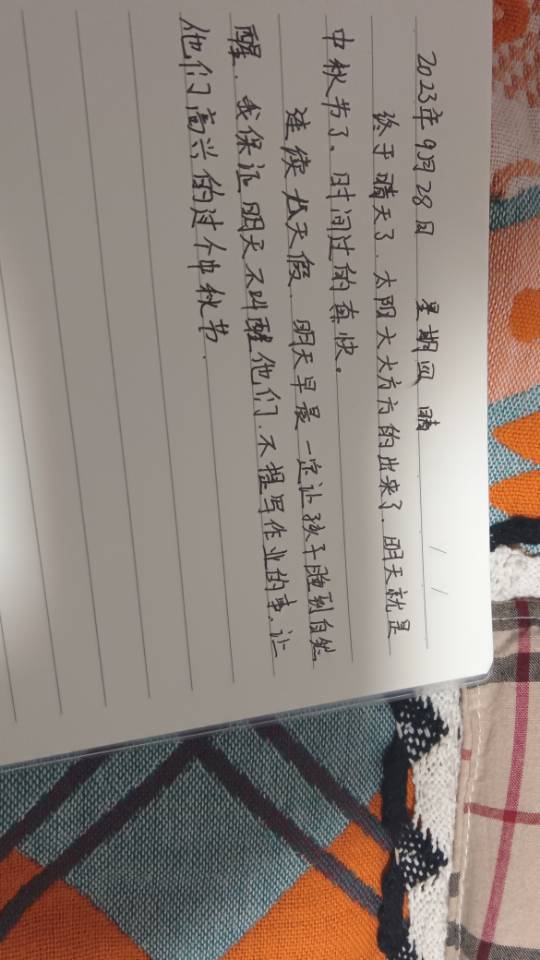 2023年9月28日 星期四 晴 / /
终于晴天了，太阳大大方方的出来了，明天就是
中秋节了，时间过的真快。
连续八天假，明天早晨一定让孩子睡到自然
醒，我保证明天不叫醒他们，不提写作业的事，让
他们高兴的过个中秋节.